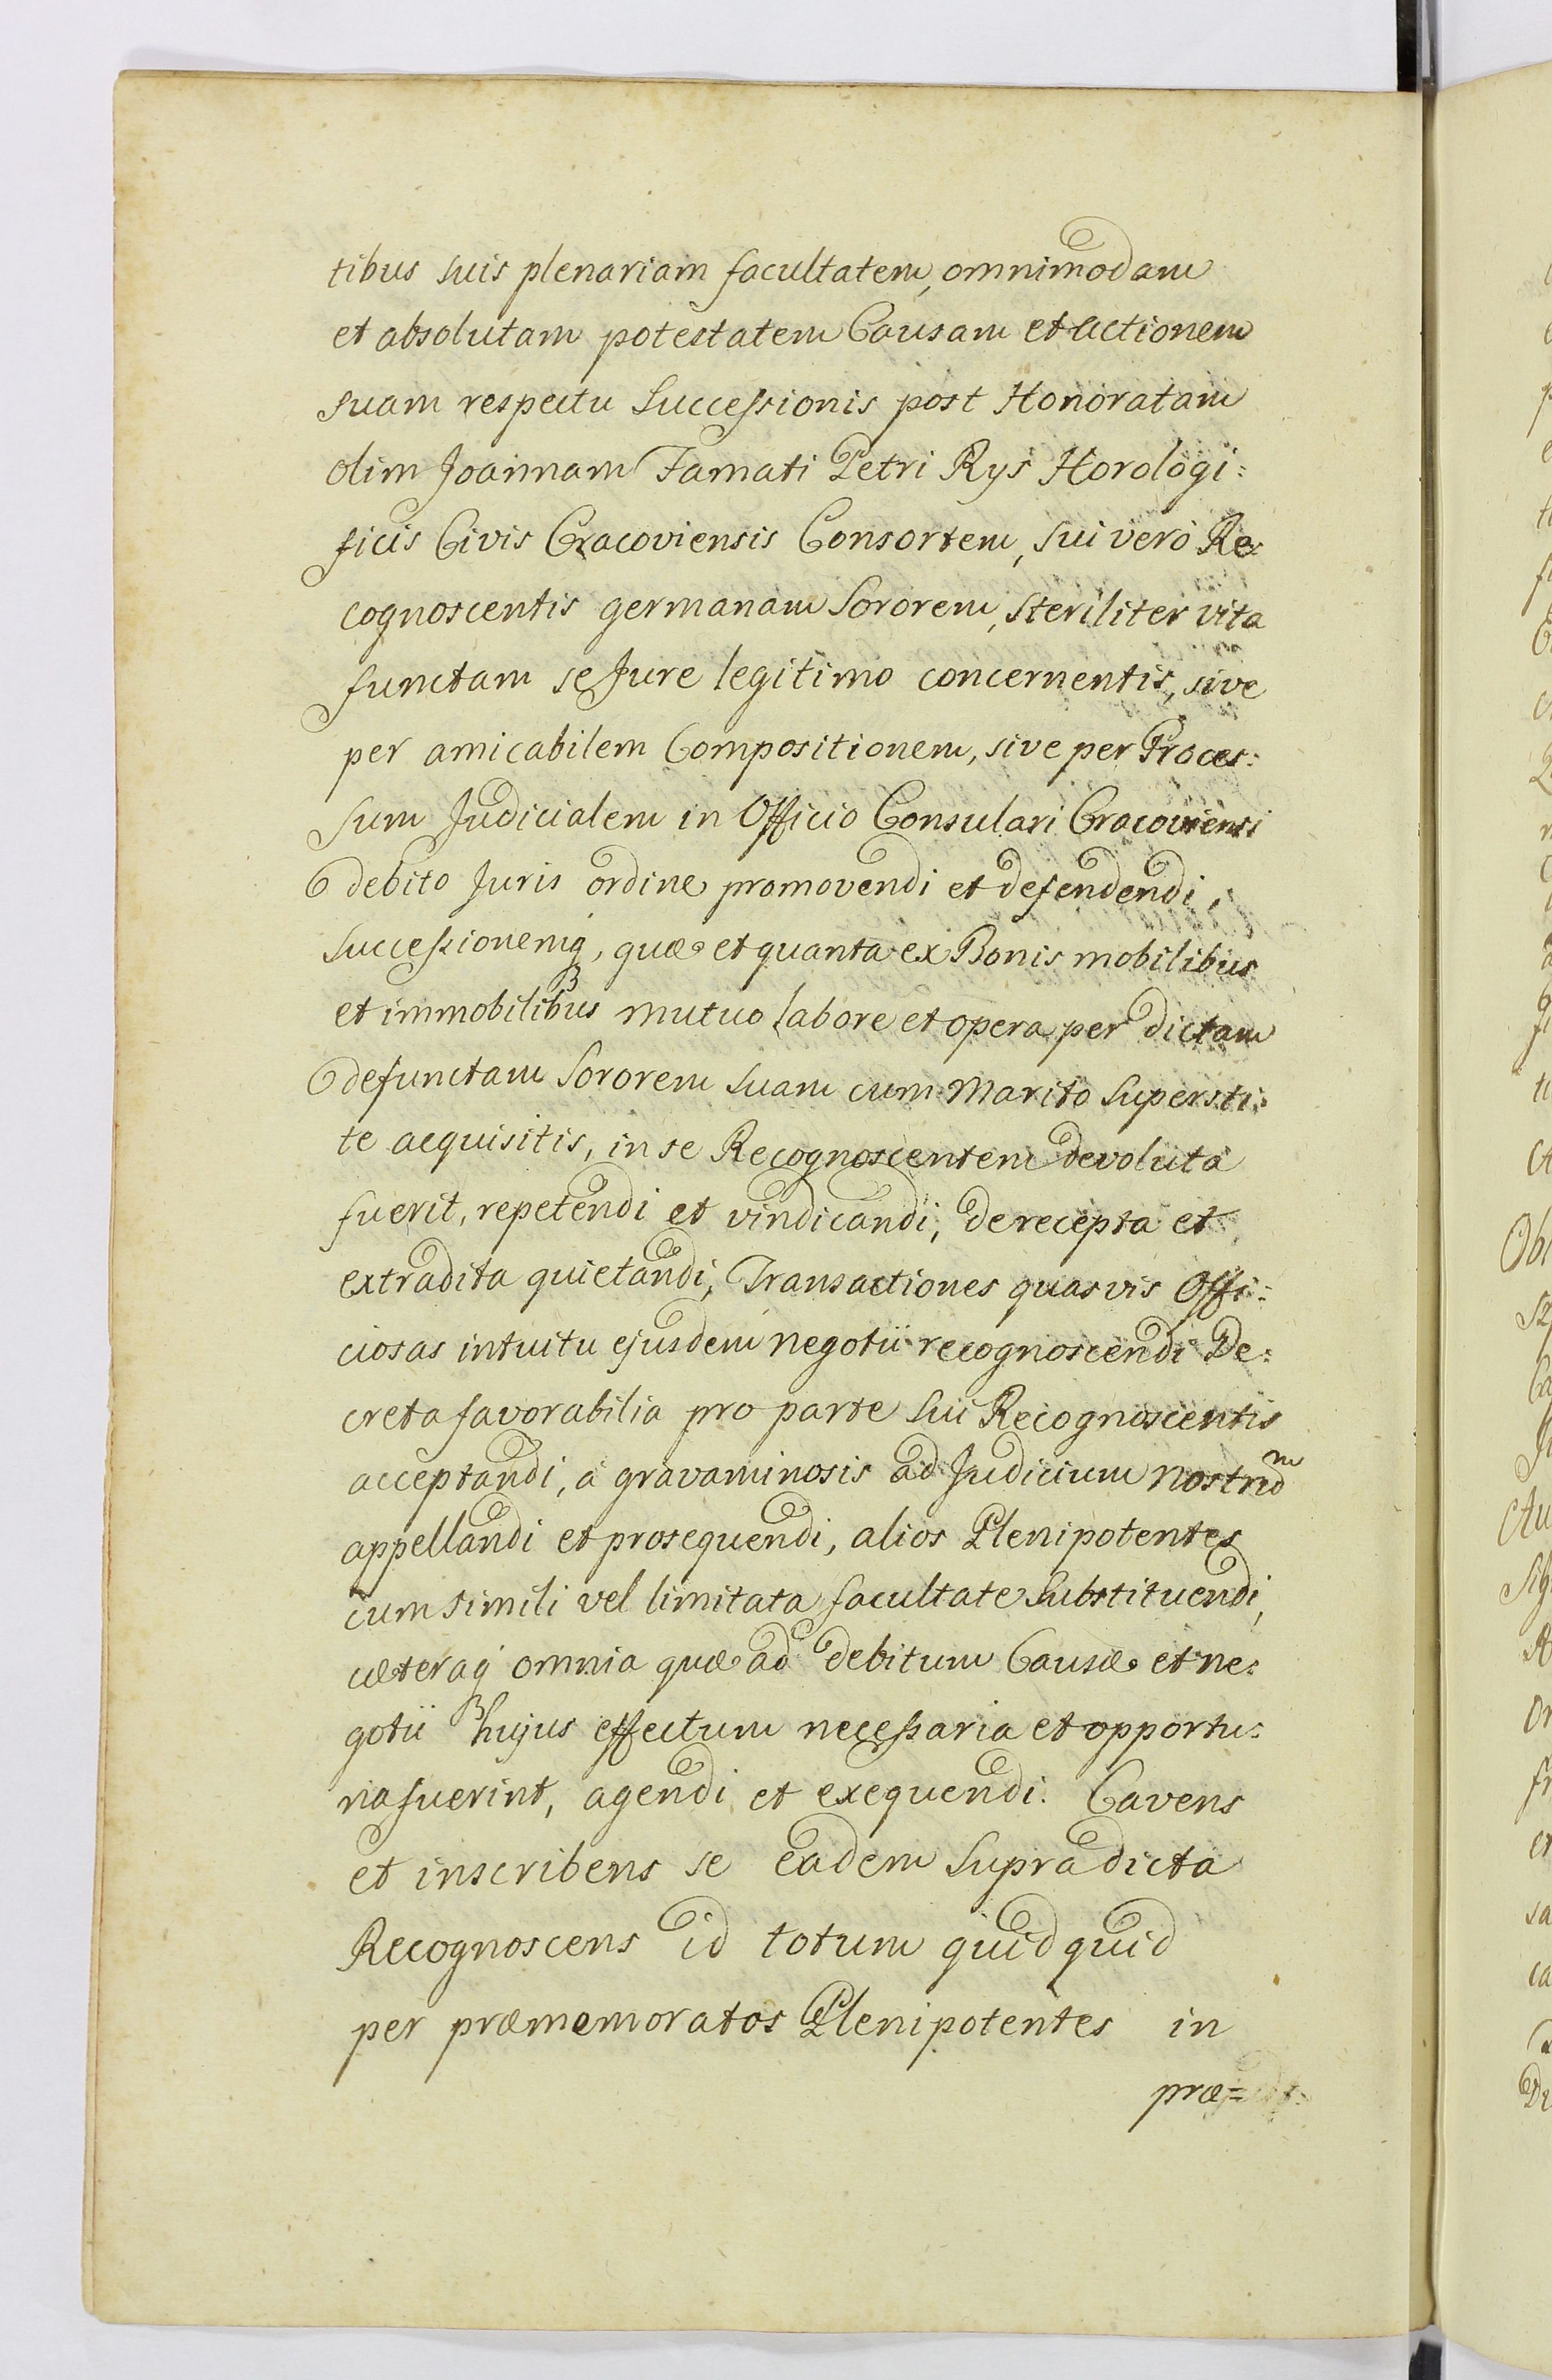 tibus suis plenariam facultatem, omnimodam
et absolutam potestatem Causam et Actionem
suam respectu Successionis post Honoratam
olim Joannam Famati Petri Rys Horologi:
ficis Civis Cracoviensis Consortem, sui vero Re:
cognoscentis germanam Sororem, steriliter vita
functam se Jure legitimo concernentis, sive
per amicabilem Compositionem, sive per Proces:
sum Judicialem in Officio Consulari Cracoviensi
debito Juris ordine promovendi et defendendi,
Successionemq, quæ et quanta ex Bonis mobilibus
et immobilibus mutuo labore et opera per dictam
defunctam Sororem suam cum Marito Supersti:
te acquisitis, in se Recognoscentem devoluta
fuerit, repetendi et vindicandi, de recepta et
extradita quietandi, Transactiones quasvis Offi:
ciosas intuitu ejusdem negotii recognoscendi De:
creta favorabilia pro parte sui Recognoscentis
acceptandi, à gravaminosis ad Judicium nostrum
appellandi et prosequendi, alios Plenipotentes
cum simili vel limitata facultate Substituendi,
cæteraq omnia quæ ad debitum Causæ et ne:
gotii hujus effectum necessaria et opportu:
na fuerint, agendi et exequendi. Cavens
et inscribens se eadem Supradicta
Recognoscens id totum quidquid
per præmemoratos Plenipotentes in
præ=